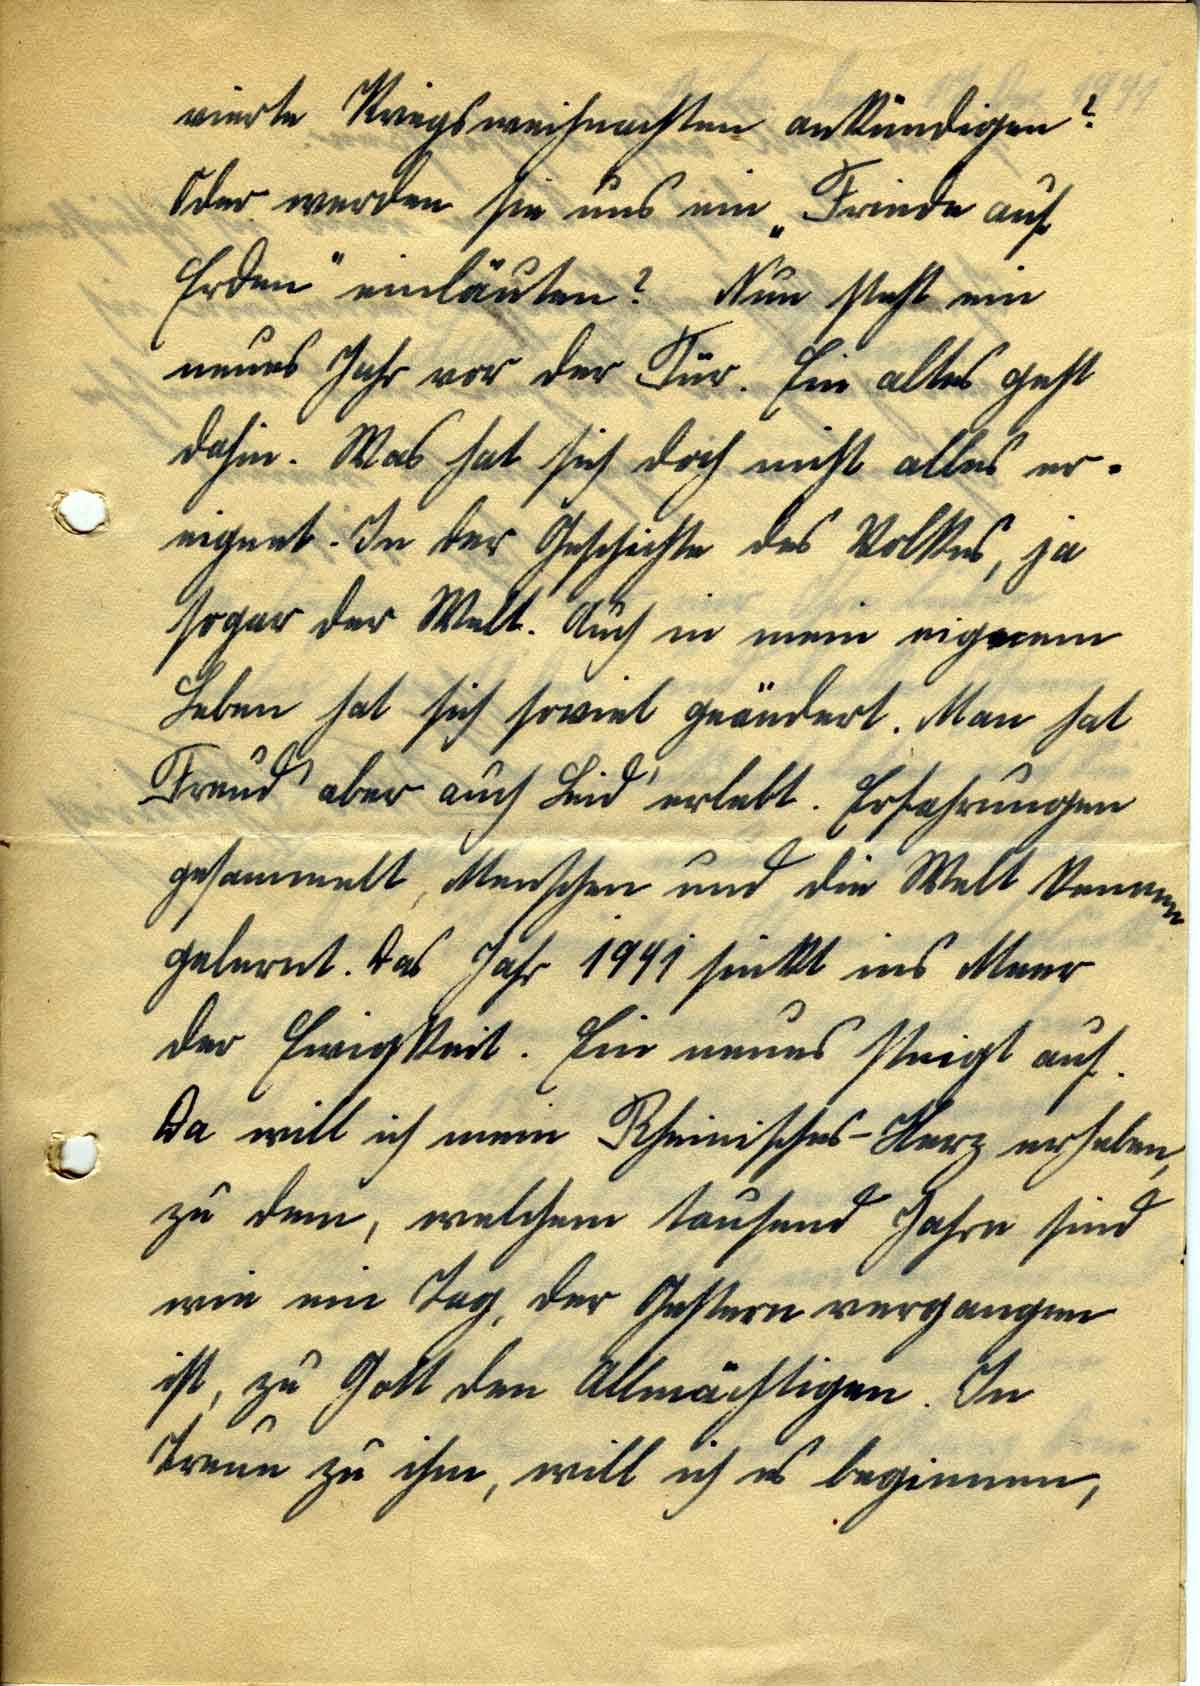 vierte Kriegsweihnachten ankündigen?
Oder werden sie uns ein „Friede auf
Erden" einläuten? Nun steht ein
neues Jahr vor der Tür. Ein altes geht
dahin. Was hat sich doch nicht alles er-
eignet. In der Geschichte des Volkes, ja
sogar der Welt. Auch in mein eigenem
Leben hat sich soviel geändert. Man hat
Freud' aber auch Leid' erlebt. Erfahrungen
gesammelt, Menschen und die Welt kennen
gelernt. Das Jahr 1941 sinkt ins Meer
der Ewigkeit. Ein neues steigt auf.
Da will ich mein Rheinisches-Herz erheben,
zu dem, welchem tausend Jahre sind
wie ein Tag, der Gestern vergangen
ist, zu Gott den Allmächtigen. In
Treue zu ihm, will ich es beginnen,